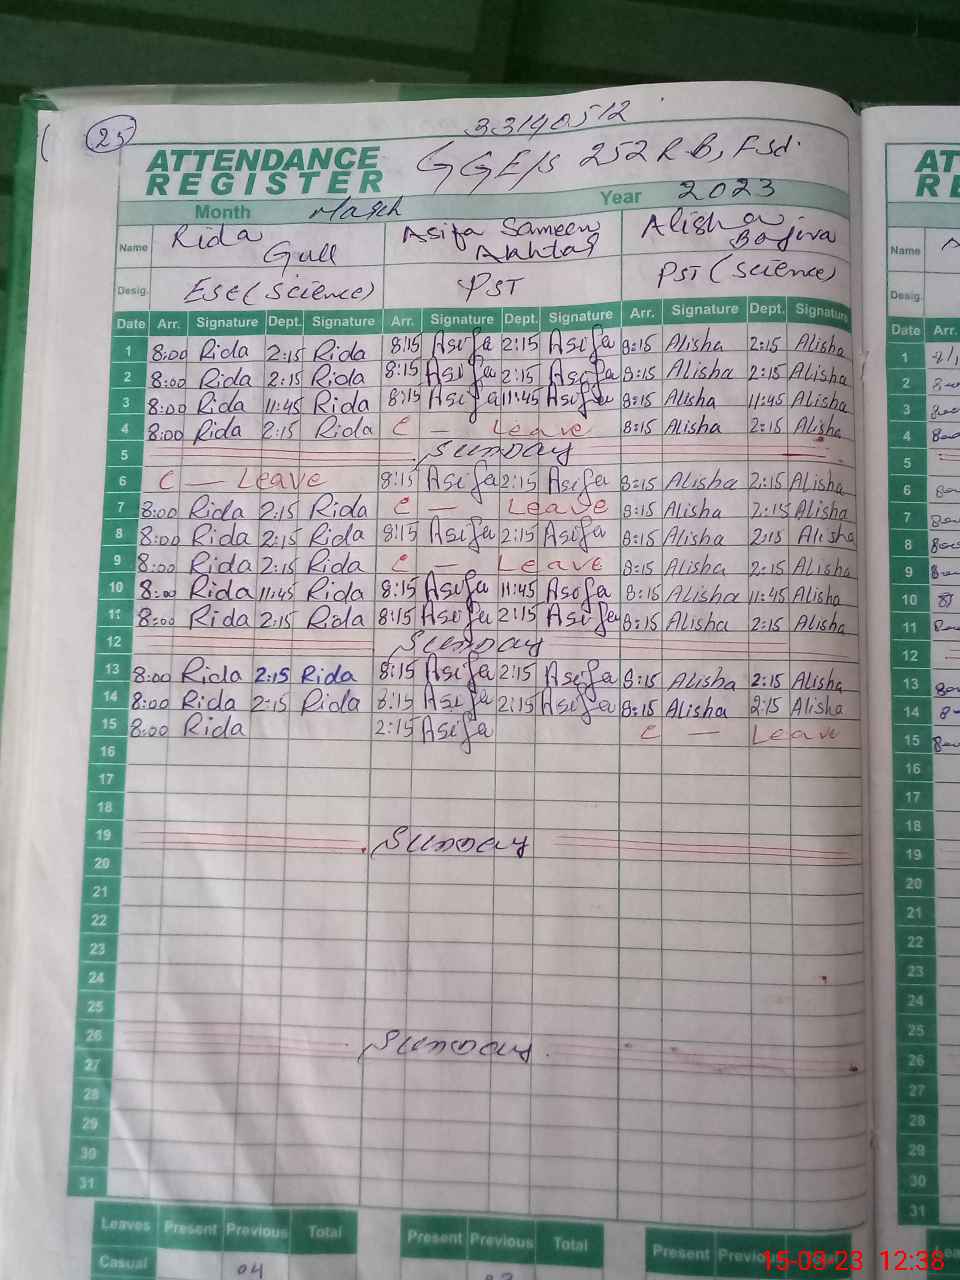 25
33140512
ATTENDANCE REGISTER
GGE/S 252 R-B, Fsd.
Month March Year 2023
Name Rida Gull Asifa Sameen Akhtar Alisha
Desig. ESE (Science) PST PST (Science)
Date Arr. Signature Dept. Signature Arr. Signature Dept. Signature Arr. Signature Dept. Signature
1 8:00 Rida 2:15 Rida 8:15 Asifa 2:15 Asifa 8:15 Alisha 2:15 Alisha
2 8:00 Rida 2:15 Rida 8:15 Asifa 2:15 Asifa 8:15 Alisha 2:15 Alisha
3 8:00 Rida 11:45 Rida 8:15 Asifa 11:45 Asifa 8:15 Alisha 11:45 Alisha
4 8:00 Rida 2:15 Rida C — Leave 8:15 Alisha 2:15 Alisha
5 Sunday
6 C — Leave 8:15 Asifa 2:15 Asifa 8:15 Alisha 2:15 Alisha
7 8:00 Rida 2:15 Rida C — Leave 8:15 Alisha 2:15 Alisha
8 8:00 Rida 2:15 Rida 8:15 Asifa 2:15 Asifa 8:15 Alisha 2:15 Alisha
9 8:00 Rida 2:15 Rida C — Leave 8:15 Alisha 2:15 Alisha
10 8:00 Rida 11:45 Rida 8:15 Asifa 11:45 Asifa 8:15 Alisha 11:45 Alisha
11 8:00 Rida 2:15 Rida 8:15 Asifa 2:15 Asifa 8:15 Alisha 2:15 Alisha
12 Sunday
13 8:00 Rida 2:15 Rida 8:15 Asifa 2:15 Asifa 8:15 Alisha 2:15 Alisha
14 8:00 Rida 2:15 Rida 8:15 Asifa 2:15 Asifa 8:15 Alisha 2:15 Alisha
15 8:00 Rida 2:15 Asifa C — Leave
16
17
18
19 Sunday
20
21
22
23
24
25
26 Sunday
27
28
29
30
31
Leaves Present Previous Total Present Previous Total Present Previous
Casual 04
15-03-23 12:38
AT
RE
Name
Desig.
Date Arr.
1
2
3
4
5
6
7
8
9
10
11
12
13
14
15
16
17
18
19
20
21
22
23
24
25
26
27
28
29
30
31